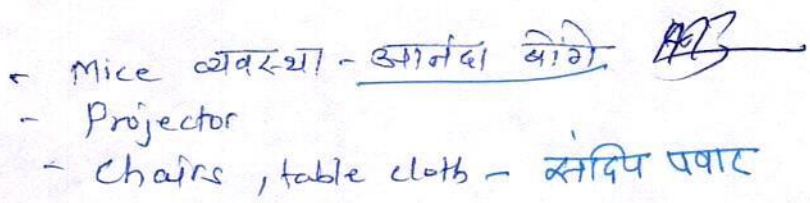 - Mice व्यवस्था - आनंदा बोंगे
- Projector
- Chairs, table cloth - संदिप पवार